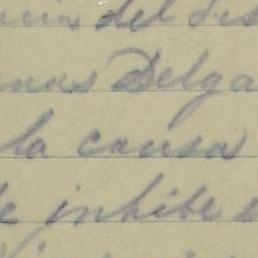 cia del dis
enas Delga
la causa
de inhibe e